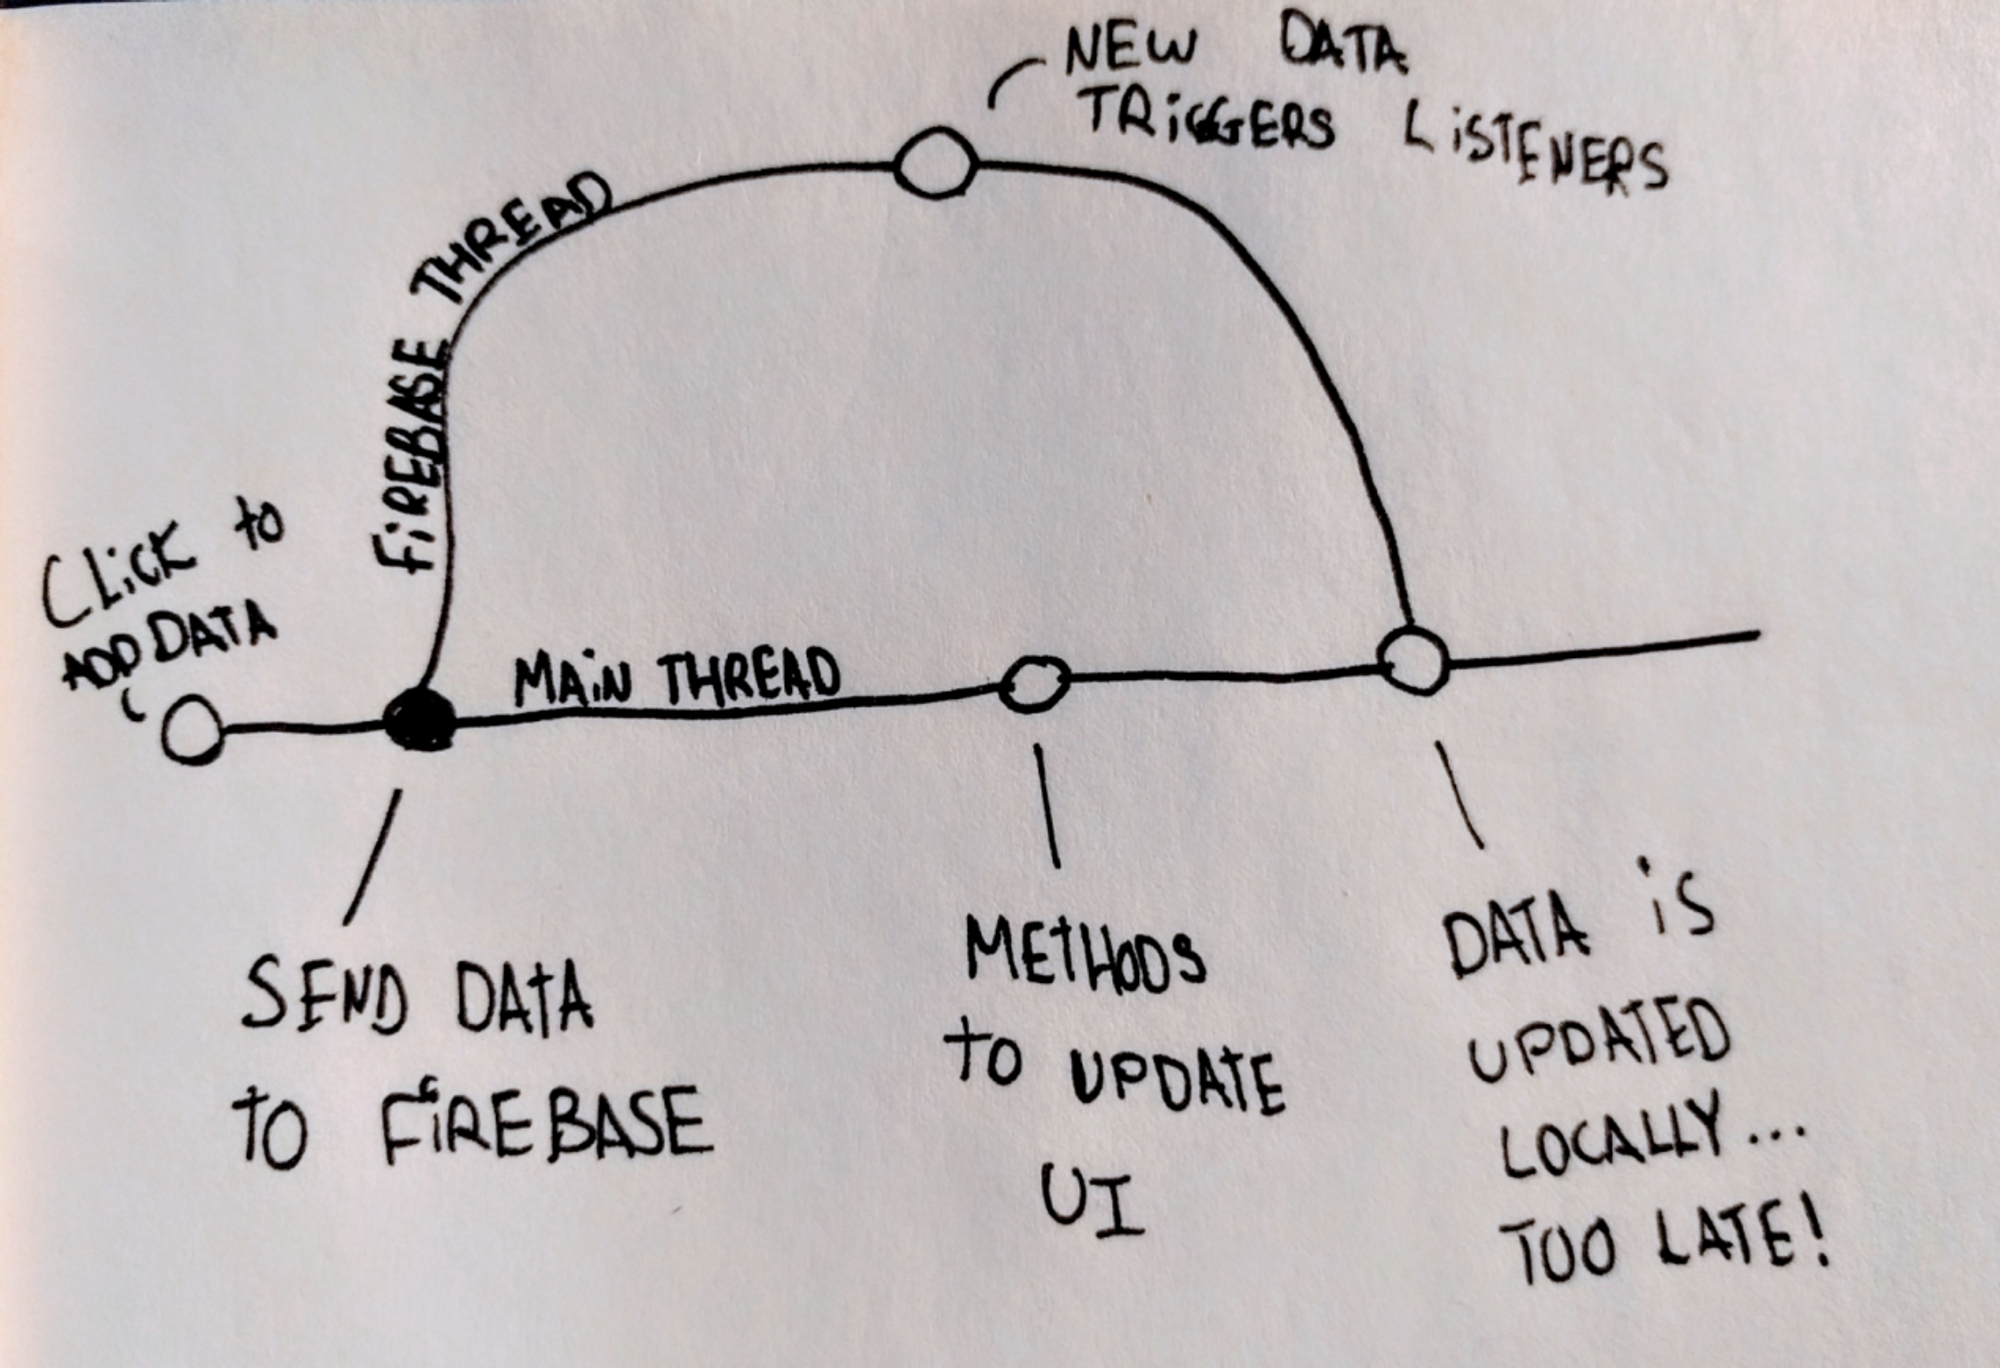 NEW DATA
TRiGGERS LiSTENERS
FiREBASE THREAD
CLiCK to
ADD DATA
MAiN THREAD
SEND DATA
to FiREBASE
METHODS
to UPDATE
UI
DATA iS
UPDATED
LOCALLY...
TOO LATE!